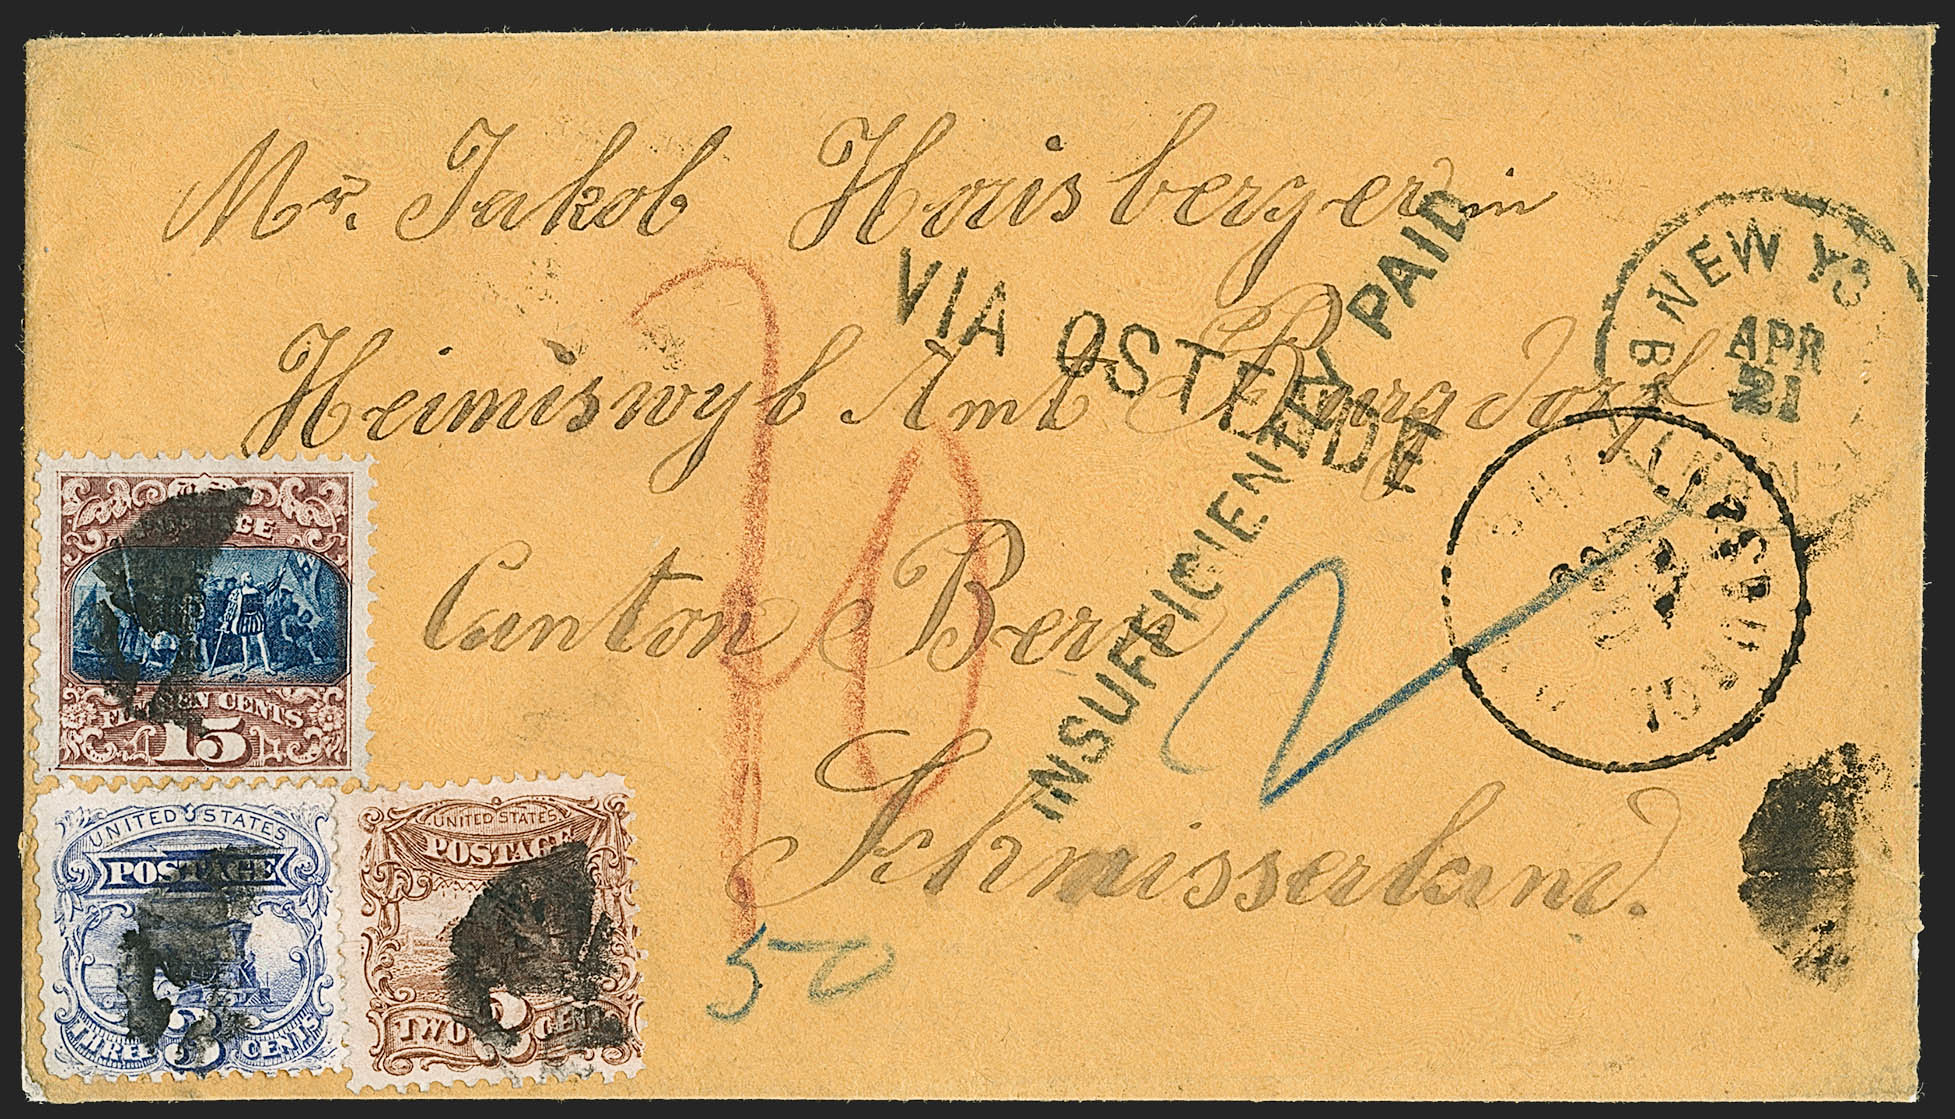 Mr. Jakob Horisberger in
Heimiswyl Amt Burgdorf
Canton Bern
Schwisserland.
VIA OSTENDE
INSUFFICIENTLY PAID
NEW YO
APR
21
50
2
U.S.
POSTAGE
FIFTEEN CENTS
15
UNITED STATES
POSTAGE
THREE 3 CENTS
UNITED STATES
POSTAGE
TWO 2 CENTS